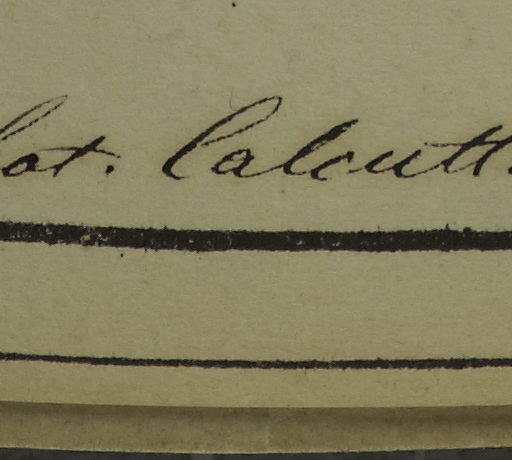 Cat. Calcutt.